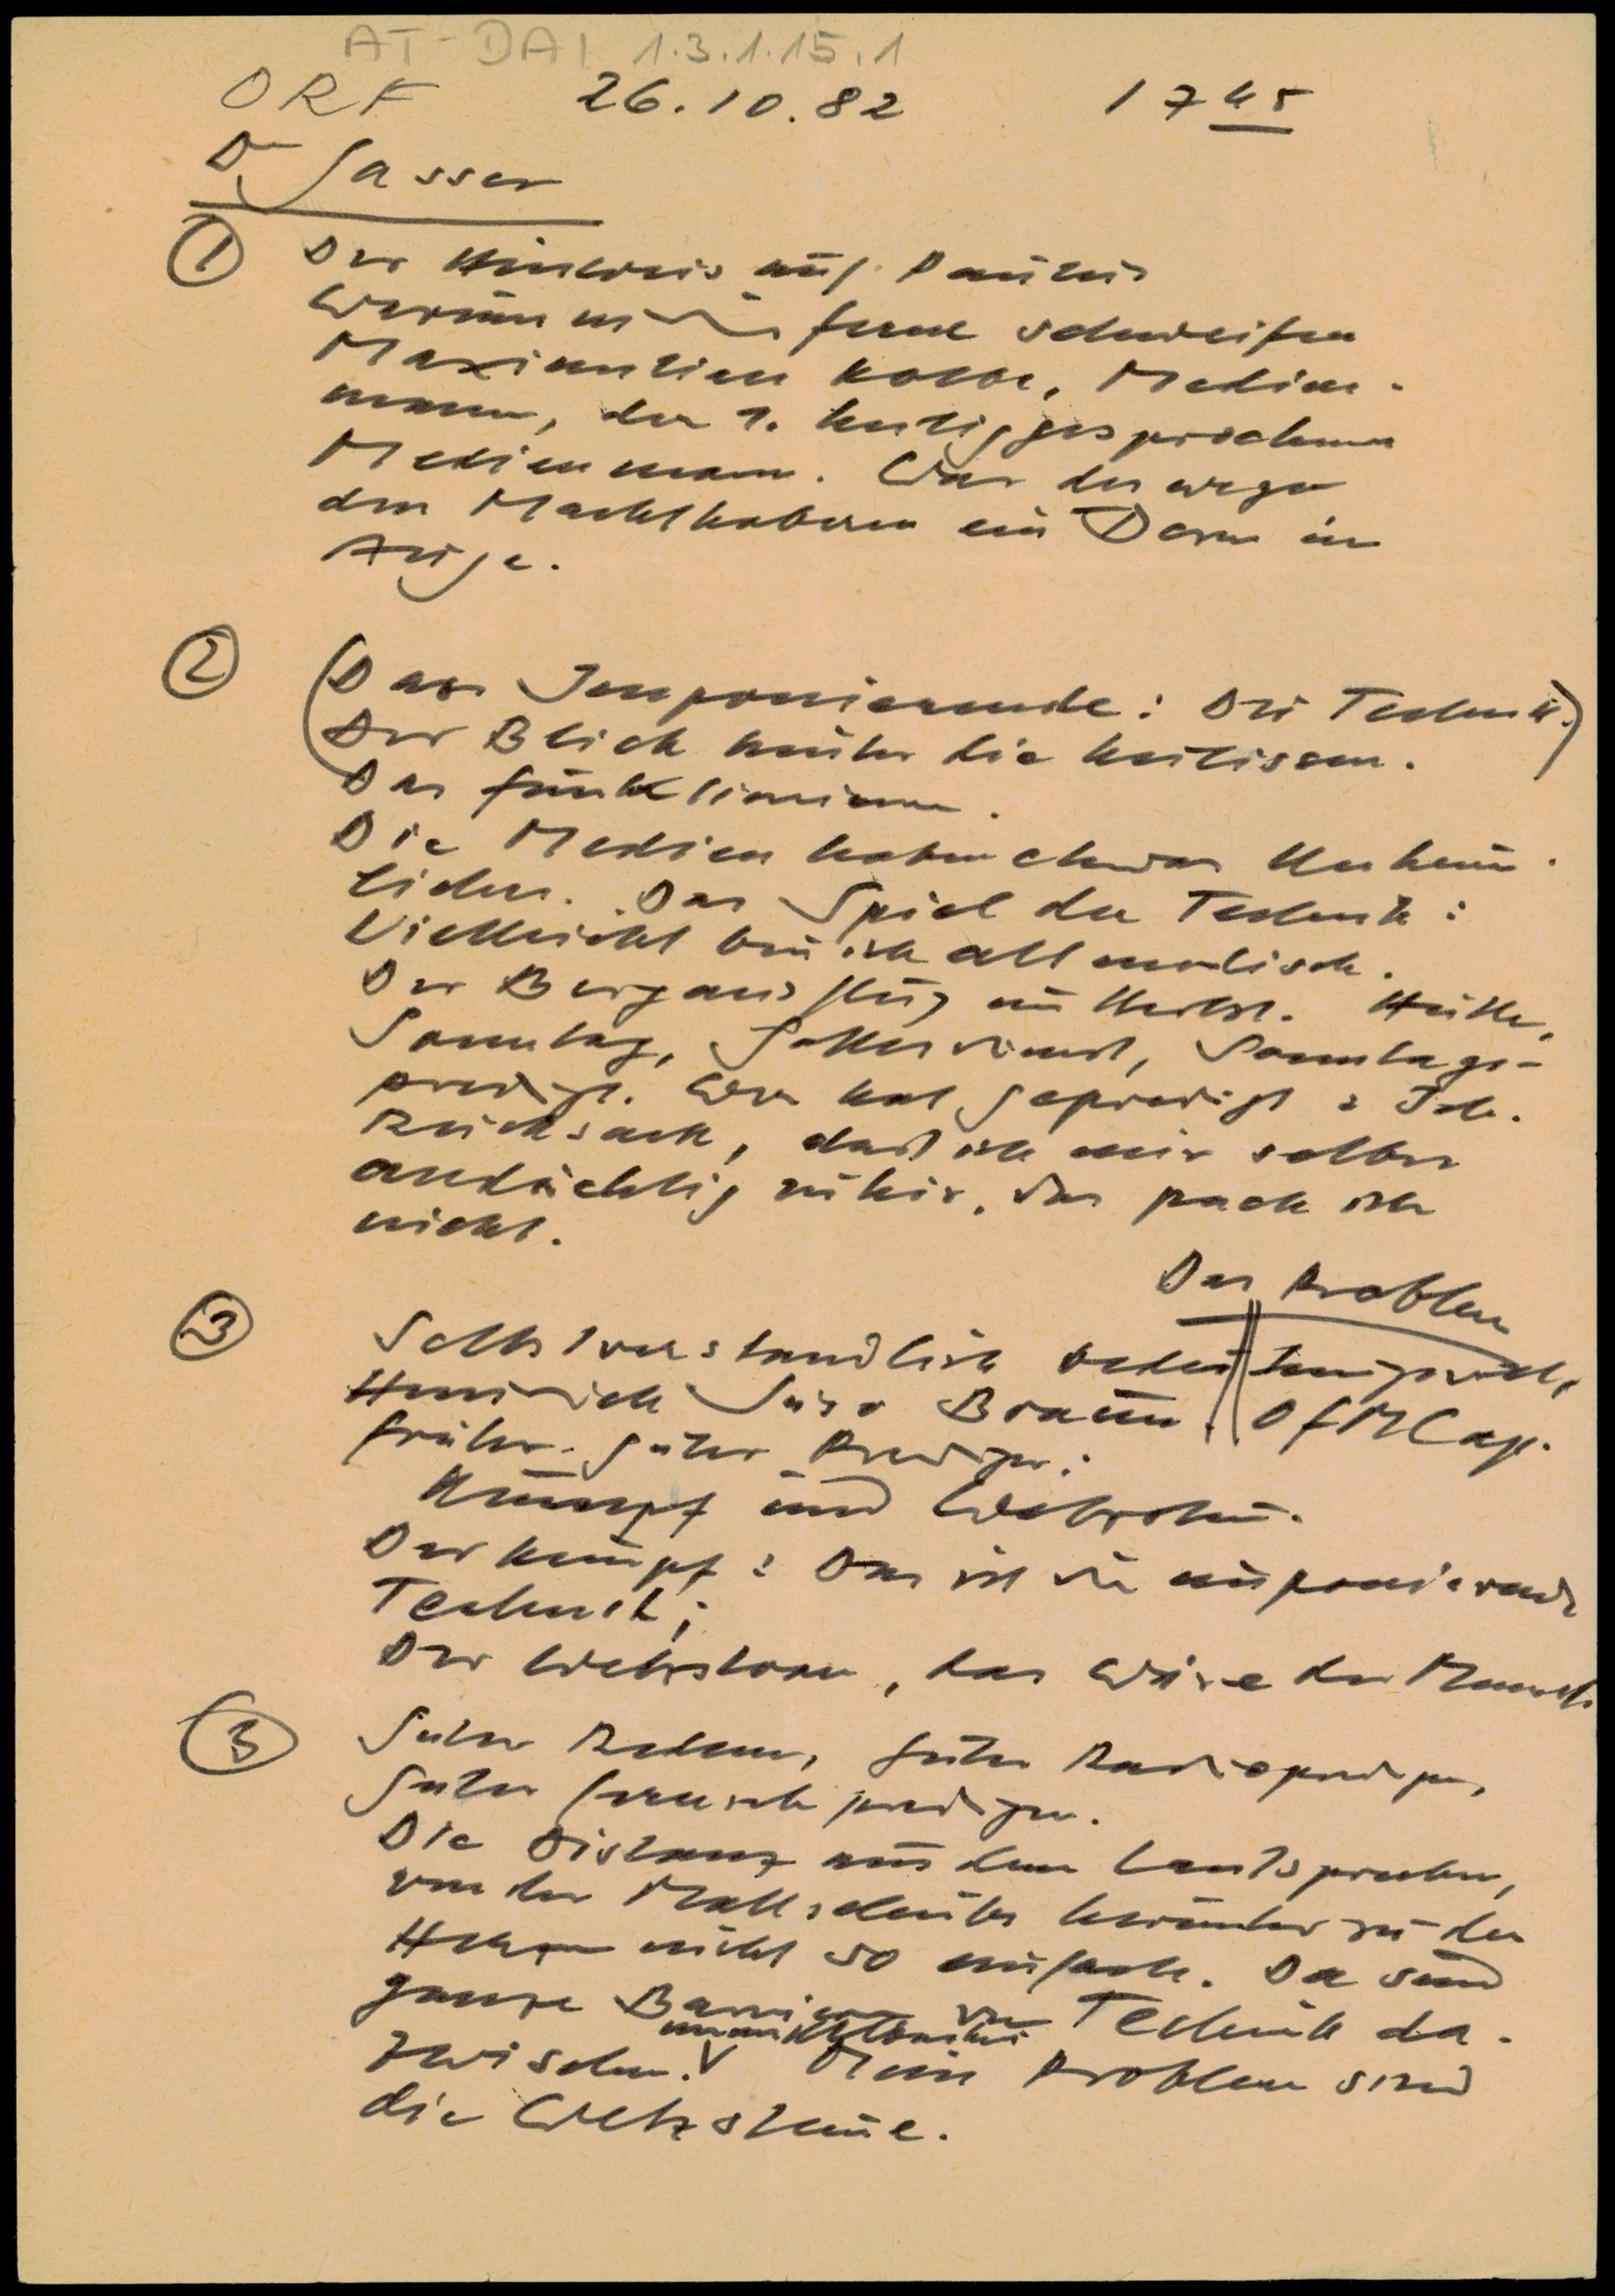 AT-DAI 1.3.1.15.1
ORF 26.10.82 17 45
Dr. Gasser
① Der Hinweis auf Paulus
Warum in die Ferne schweifen
Maximilian Kolbe, Medien-
mann, der 1. heiliggesprochene
Medienmann. War deswegen
den Machthabern ein Dorn im
Auge.
② (Das Imponierende: Die Technik.)
Der Blick hinter die Kulissen.
Das Funktionieren.
Die Medien haben etwas Unheim-
liches. Das Spiel der Technik:
Vielleicht bin ich altmodisch.
Der Bergausflug im Herbst. Hütte,
Sonntag, Gottesdienst, Sonntags-
predigt. Wer hat gepredigt: Ich.
Rucksack, daß ich mir selber
andächtig zuhör, das pack ich
nicht.
Das Problem
③ Selbstverständlich
Heinrich Suso Braun. OFMCap.
früher. guter Prediger:
Kumpf und Wetzstein.
Der Kumpf: Das ist die imponierende
Technik;
Der Wetzstein, das wäre der Mensch
③ Guter Redner, guter Radioprediger,
guter Fernsehprediger.
Die Distanz aus dem Lautsprecher,
von der Mattscheibe herunter zu den
Herzen nicht so einfach. Da sind
ganze Barrieren von Technik da-
zwischen. Mein Problem sind
die Wetzsteine.